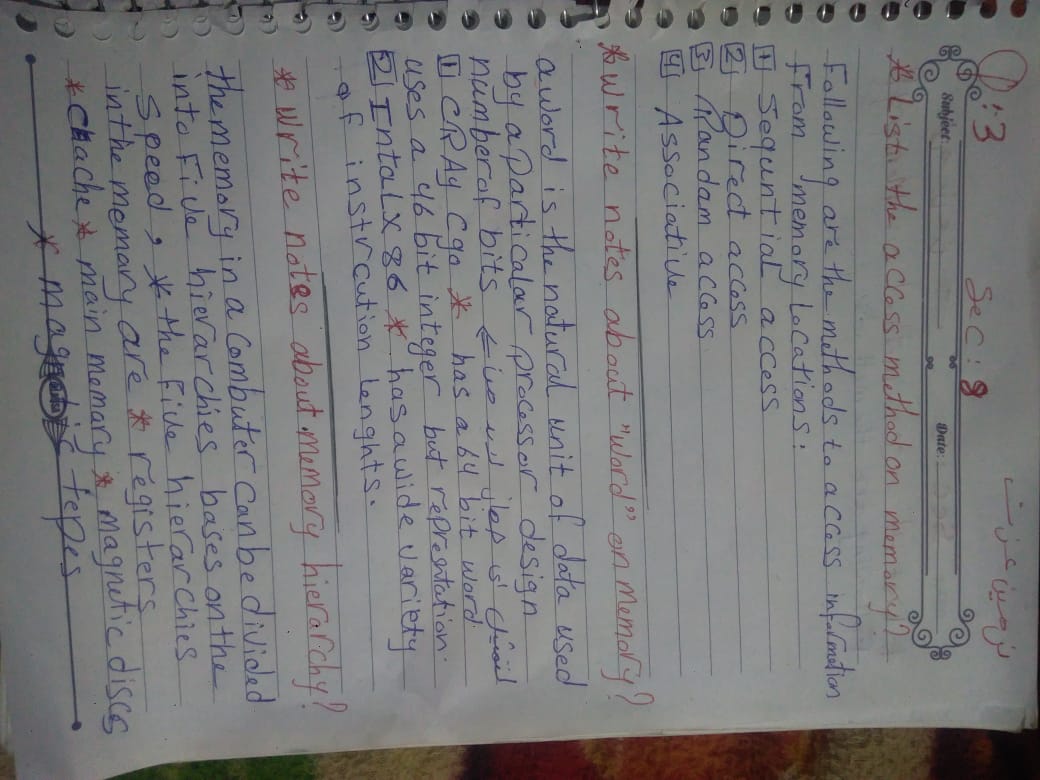 نرمين عزت
Q:3
Sec: 8
Subject:
Date:
* List the access method on memory?
Following are the methods to access information
From memory Locations:
1 Sequntial access
2 Direct access
3 Randam access
4 Associative
* Write notes about "word" on memory?
a word is the natural unit of data used
by a particalar processor design
number of bits ←
1 CRAy C90 * has a 64 bit word
uses a 46 bit integer but represntation.
2 IntaLX 86 * has a wide variety
of instrcution lenghts.
* Write notes about memory hierarchy?
the memory in a Combuter Can be divided
into Five hierarchies bases on the
Speed, * the Five hierarchies
in the memary are * registers
* Chache * main memary * magnetic discs
* magnetic tepes